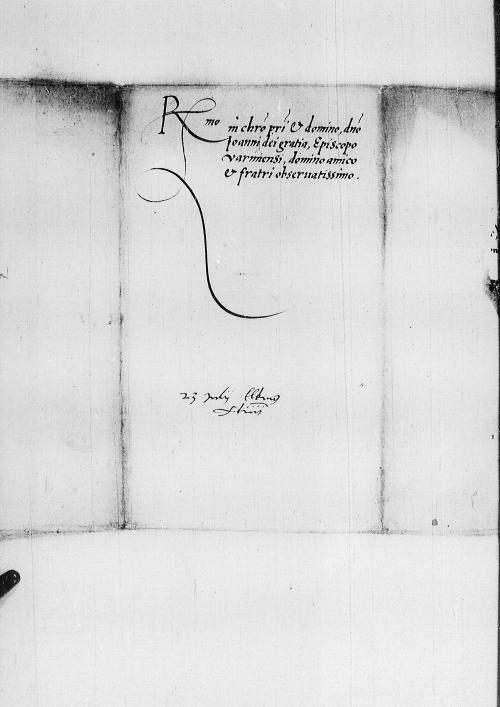 Rmo in chro pri & domino, dno
Ioanni dei gratia, Episcopo
varmiensi, domino amico
& fratri observatissimo.
23 Julij